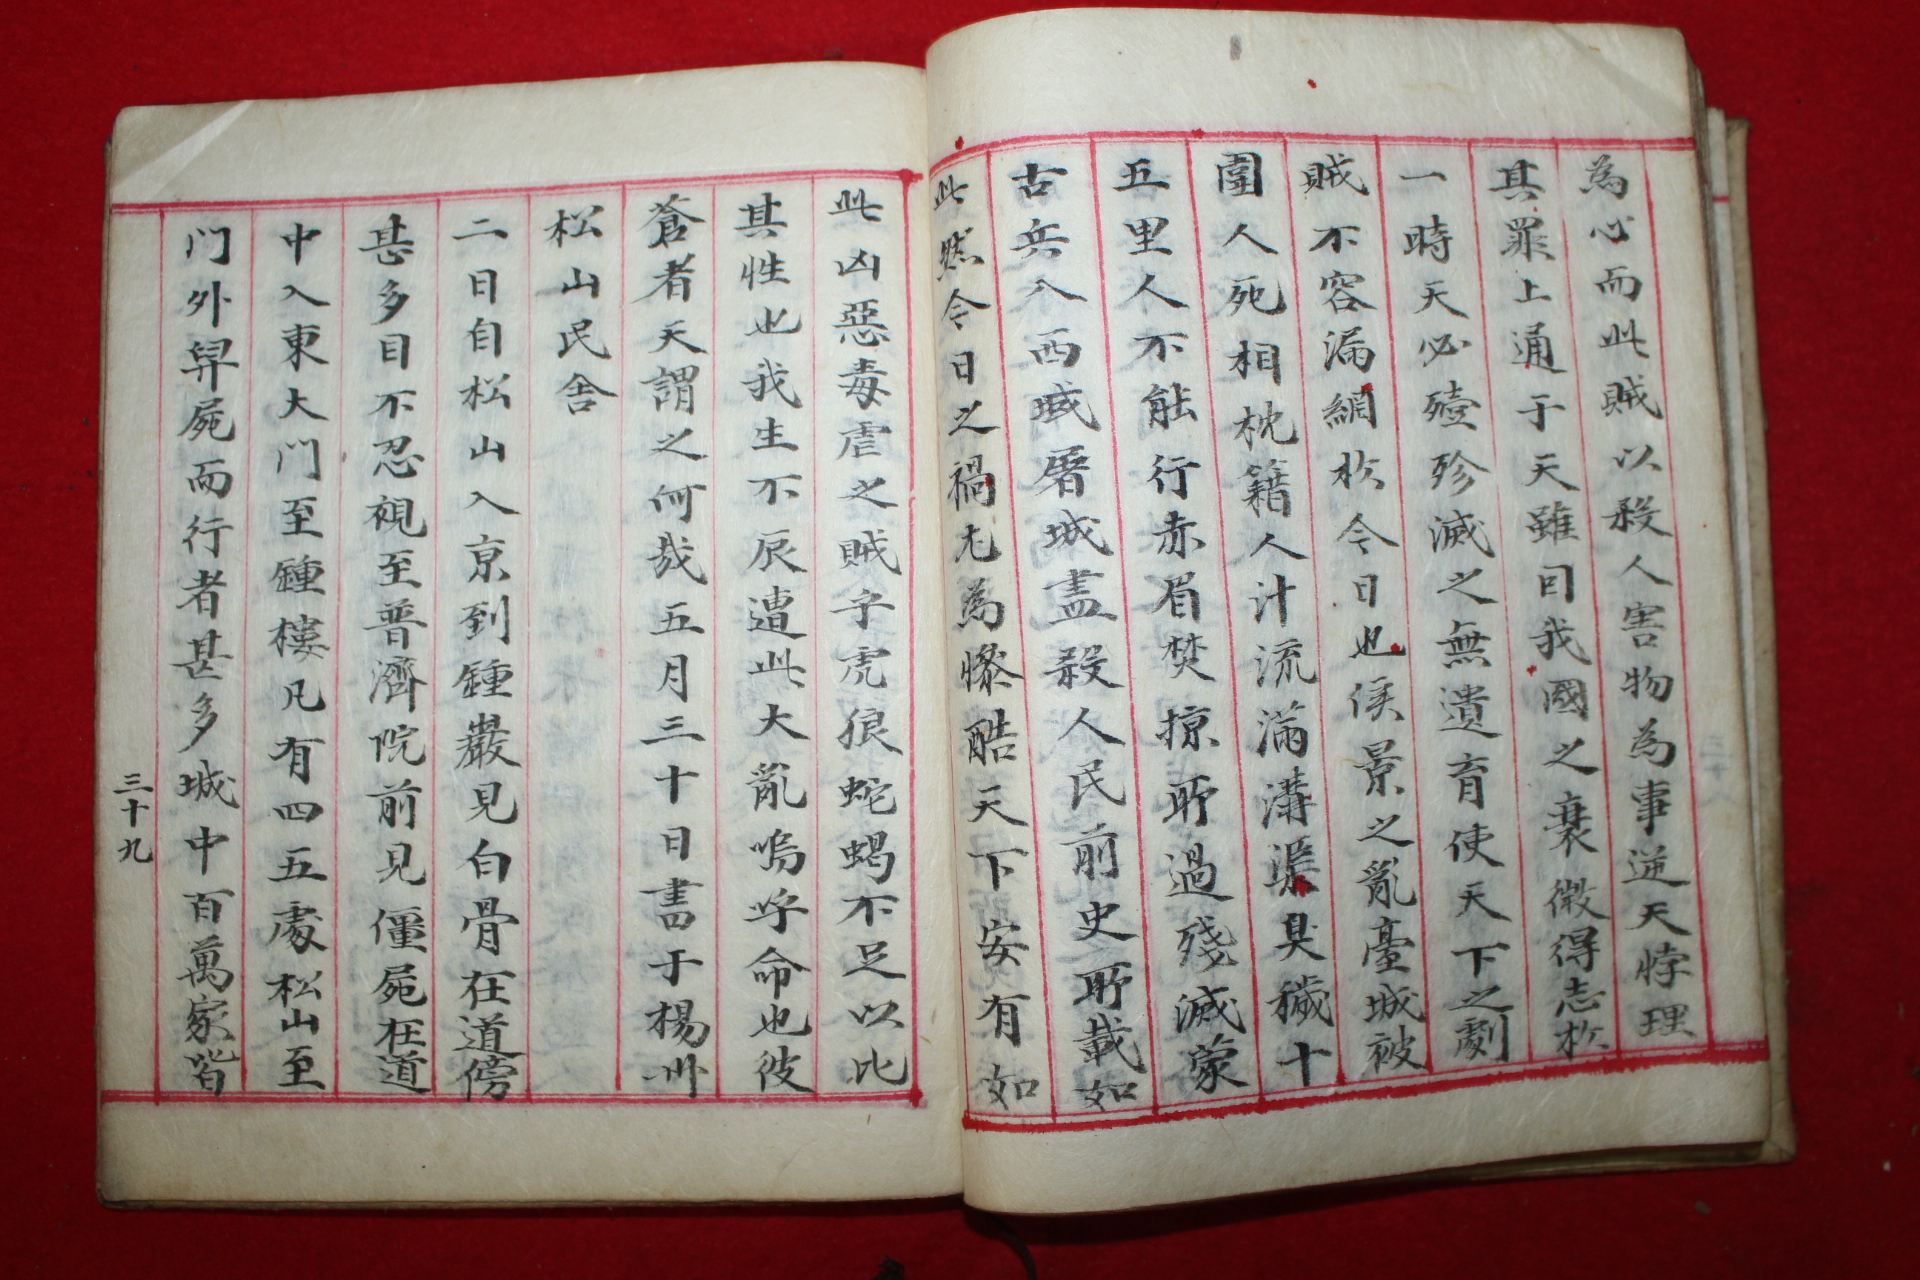 為心而此賊以殺人害物為事逆天悖理
其罪上通于天雖曰我國之衰微得志於
一時天必殪殄滅之無遺育使天下之劇
賊不容漏網於今日也侯景之亂臺城被
圍人死相枕籍人汁流滿溝渠臭穢十
五里人不能行赤眉焚掠所過殘滅蒙
古兵入西域屠城盡殺人民前史所載如
此然今日之禍尤為慘酷天下安有如
此凶惡毒虐之賊乎虎狼蛇蝎不足以比
其性也我生不辰遭此大亂嗚呼命也彼
蒼者天謂之何哉五月三十日書于楊州
松山民舍
二日自松山入京到鍾巖見白骨在道傍
甚多目不忍視至普濟院前見僵屍在道
中入東大門至鍾樓凡有四五處松山至
門外舁屍而行者甚多城中百萬家皆
三十九